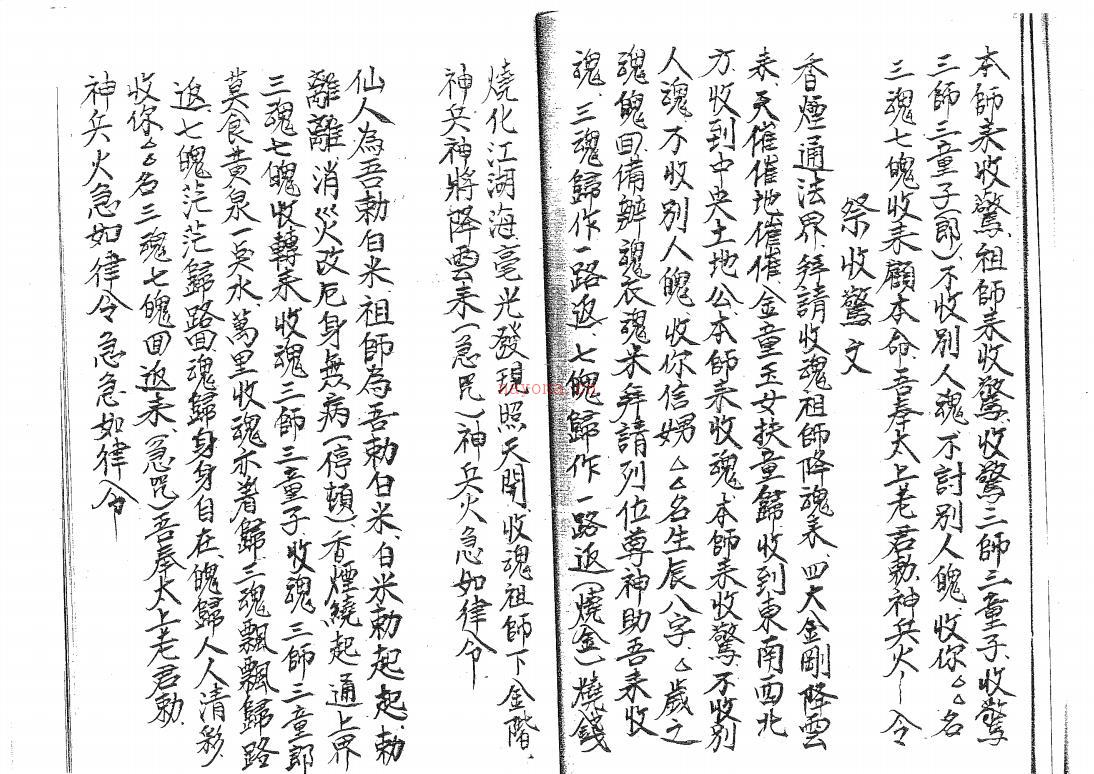 本師來收驚、祖師來收驚、收驚三師三童子、收驚
三師三童子(郎)、不收別人魂不討別人魄、收你△△名
三魂七魄收來顧本命、吾奉太上老君勅、神兵火~令
祭收驚文
香煙通法界、拜請收魂祖師降魂來、四大金剛降雲
來、天催催地催催、金童玉女扶童歸收到東南西北
方、收到中央土地公、本師來收魂、本師來收驚、不收別
人魂不收別人魄、收你信娚△△名生辰八字、△歲之
魂魄回、備辦魂衣魂米拜請列位尊神助吾來收
魂、三魂歸作一路返、七魄歸作一路返(燒金)燒錢
燒化江湖海毫光發現照天開收魂祖師下金階、
神兵神將降雲來(急咒)神兵火急如律令
仙人為吾勅白米、祖師為吾勅白米、白米勅起起勅
離離消災改厄身無病(停頓)、香煙繞起通上界
三魂七魄收轉來收魂三師三童子收魂三師三童郎
莫食黃泉一点水、萬里收魂亦着歸三魂飄飄歸路
返七魄茫茫歸路回魂歸身身自在魄歸人人清彩
收你△△名三魂七魄回返來、(急咒)吾奉太上老君勅
神兵火急如律令急急如律令
nayona.cn